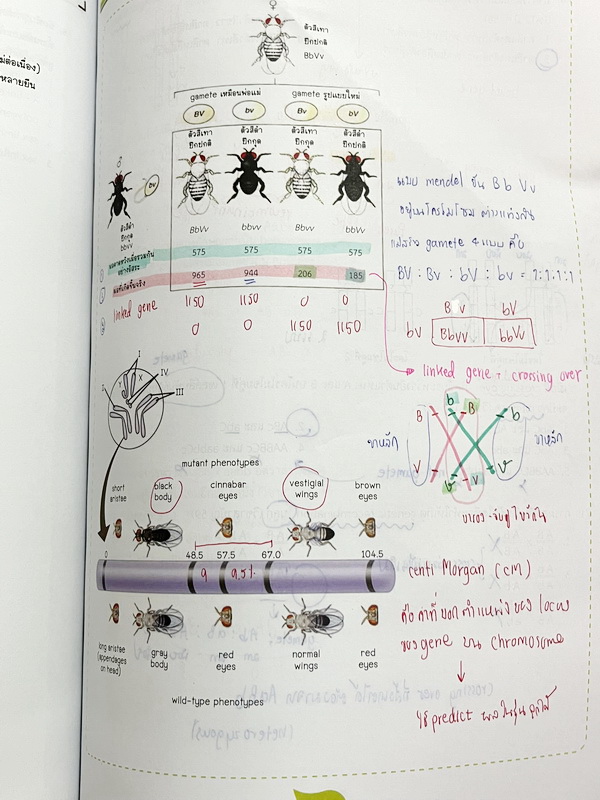 ม่ต่อเนื่อง)
หลายยีน
♀
ตัวสีเทา
ปีกปกติ
BbVv
gamete เหมือนพ่อแม่
gamete รูปแบบใหม่
BV
bv
Bv
bV
ตัวสีเทา
ปีกปกติ
ตัวสีดำ
ปีกกุด
ตัวสีเทา
ปีกกุด
ตัวสีดำ
ปีกปกติ
♂
bv
ตัวสีดำ
ปีกกุด
bbvv
BbVv
bbvv
Bbvv
bbVv
อย่างอิสระ
575 575 575 575
ผลที่เกิดขึ้นจริง
965 944 206 185
linked gene
1150 1150 0 0
0 0 1150 1150
แบบ mendel ยีน Bb Vv
อยู่บนโครโมโซม ต่างแท่งกัน
gamete 4 แบบ คือ
BV : Bv : bV : bv = 1:1:1:1
Bv bV
bv Bbvv bbVv
linked gene + crossing over
b B
B b
V v
b v
I
Y X
IV
II
III
mutant phenotypes
short
aristae
black
body
cinnabar
eyes
vestigial
wings
brown
eyes
0 48.5 57.5 67.0 104.5
9 9.5%
long aristae
(appendages
on head)
gray
body
red
eyes
normal
wings
red
eyes
wild-type phenotypes
centi Morgan (cM)
คือ ค่าที่บอกตำแหน่งของ locus
ของ gene บน chromosome
ใช้ predict ผลในรุ่นลูกได้